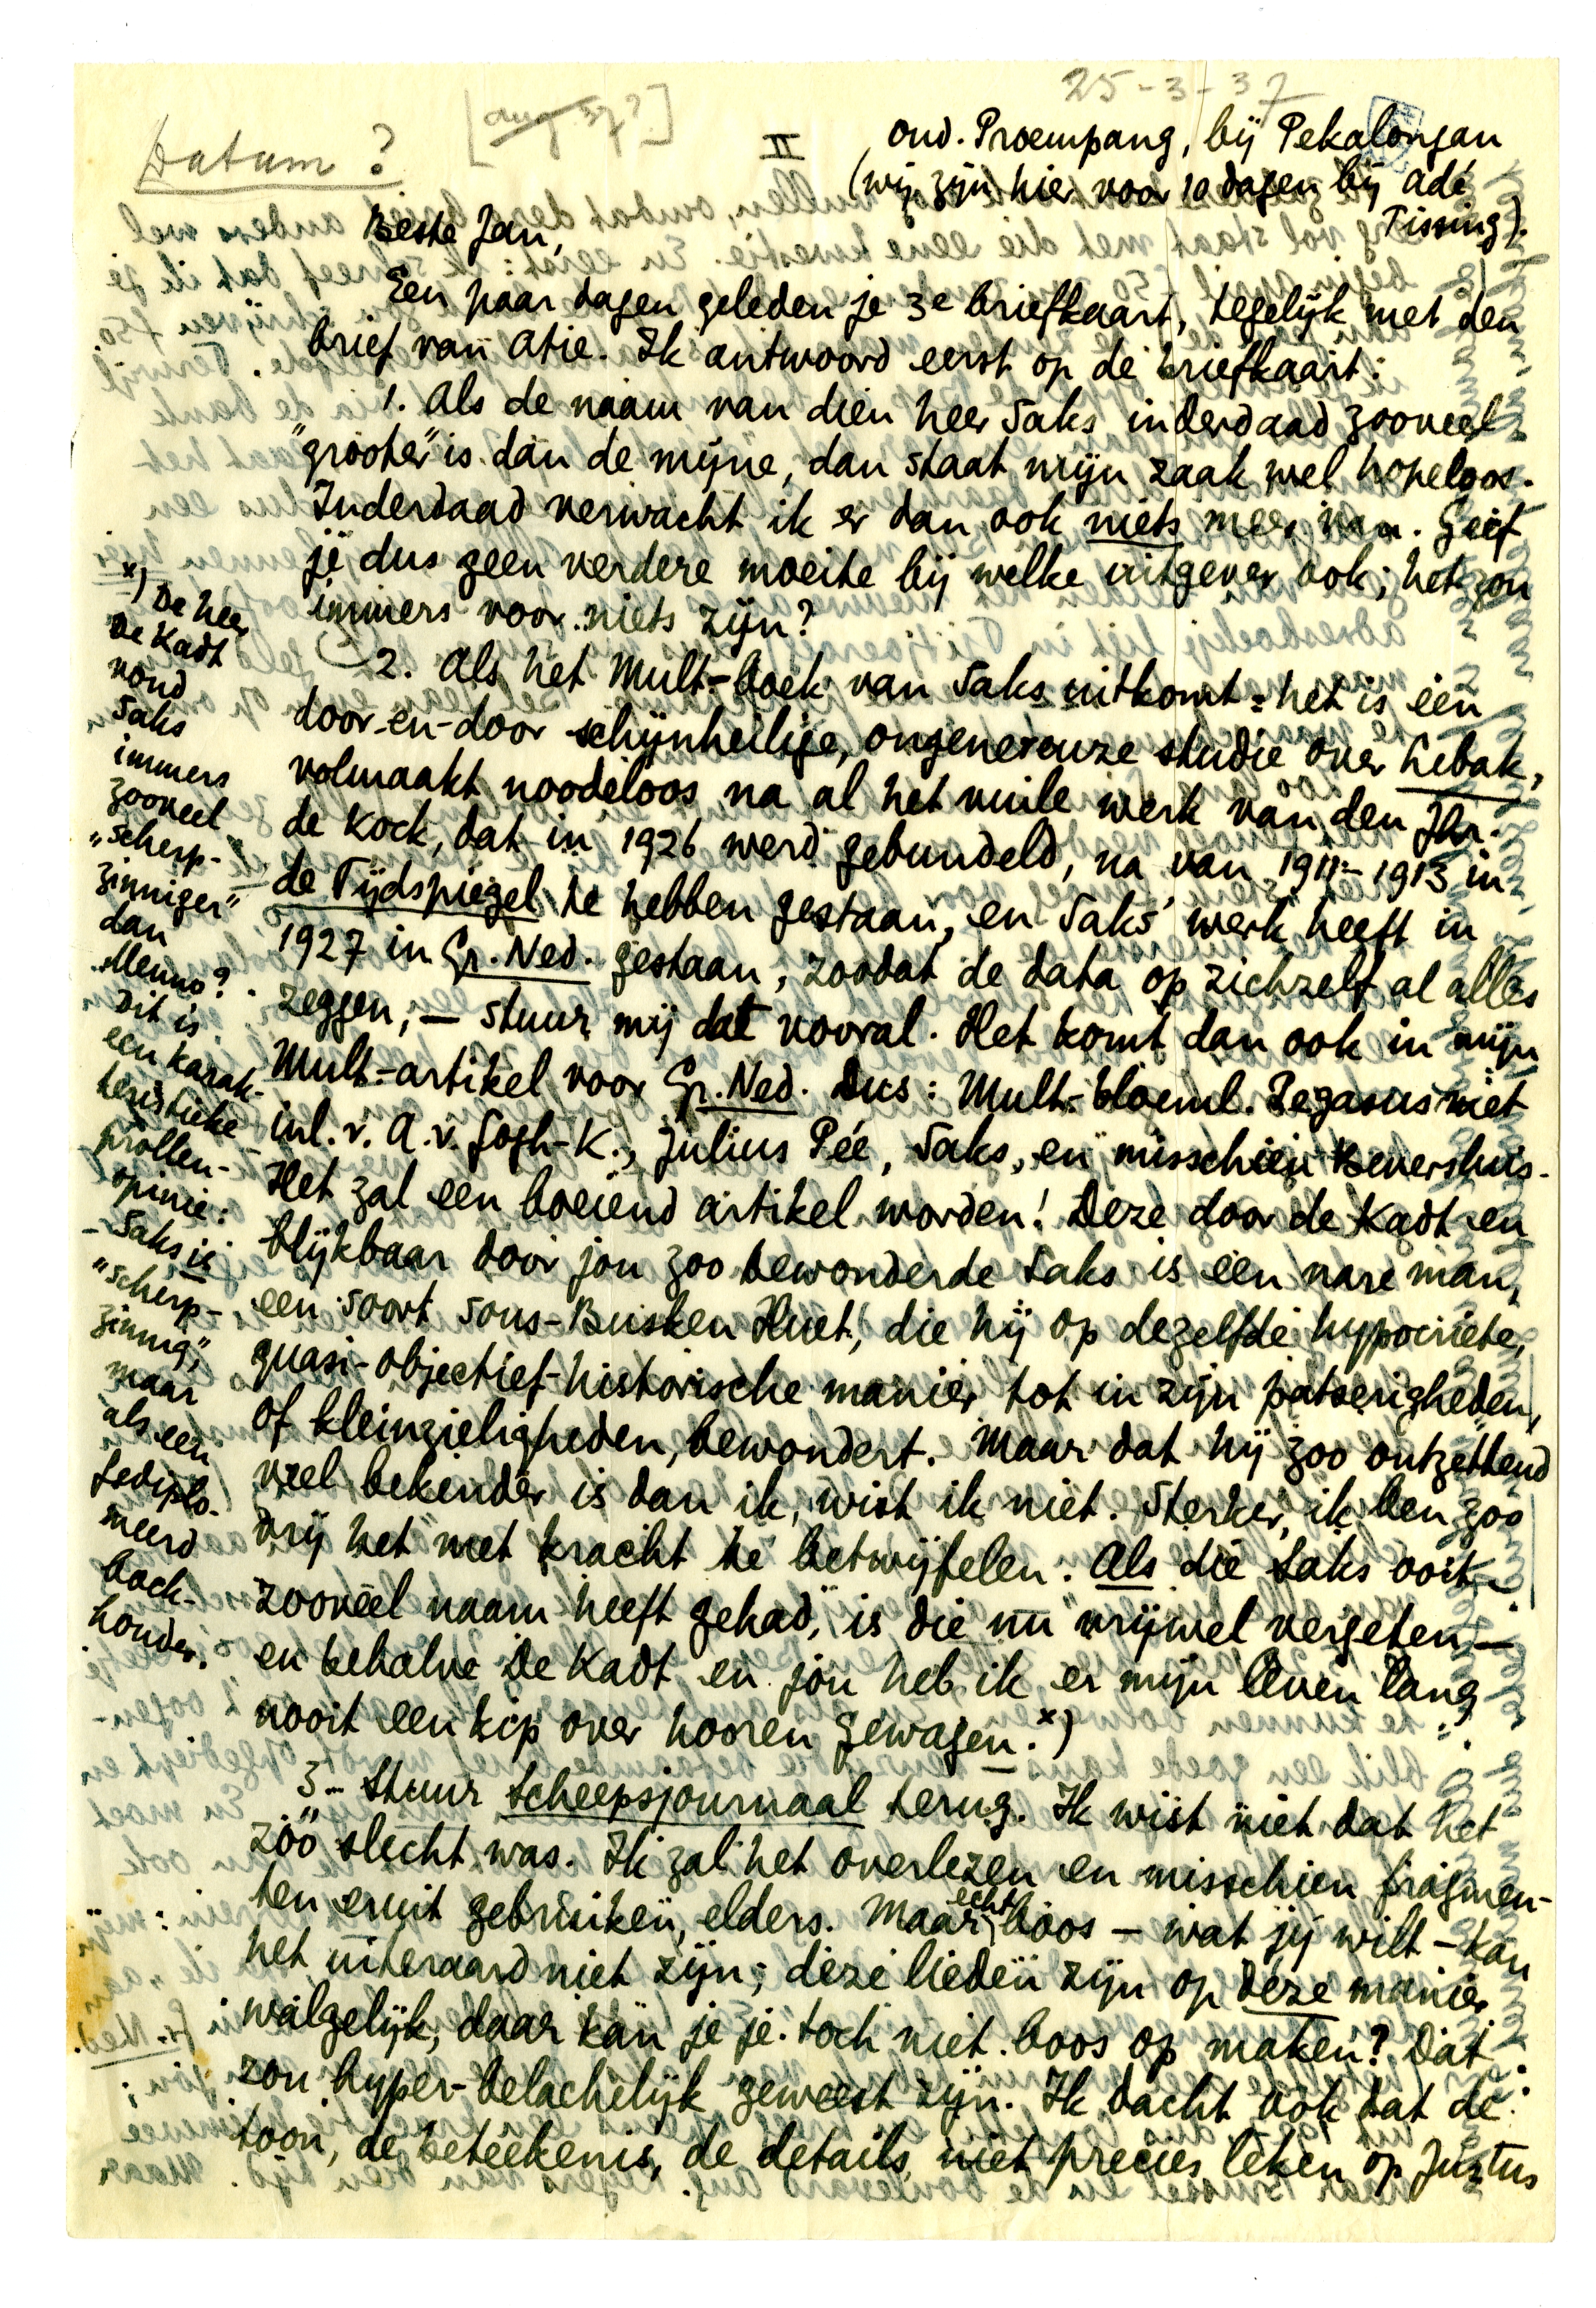 25-3-37
[aug. 37?]
Datum?
II
ond. Proempang, bij Pekalongan
(wij zijn hier voor 10 dagen bij Adé
Tissing).
Beste Jan,
Een paar dagen geleden je 3e briefkaart, tegelijk met den
brief van Atie. Ik antwoord eerst op de briefkaart:
1. Als de naam van dien heer Saks inderdaad zooveel
"grooter" is dan de mijne, dan staat mijn zaak wel hopeloos.
Inderdaad verwacht ik er dan ook niets meer van. Geef
je dus geen verdere moeite bij welke uitgever ook; het zou
immers voor niets zijn?
2. Als het Mult-boek van Saks uitkomt: het is een
door-en-door schijnheilige, ongenereuze studie over Lebak,
volmaakt noodeloos na al het vuile werk van den Jhr.
de Kock, dat in 1926 werd gebundeld, na van 1911-1913 in
de Tijdspiegel te hebben gestaan, en Saks' werk heeft in
1927 in Gr. Ned. gestaan, zoodat de data op zichzelf al alles
zeggen, — stuur mij dat vooral. Het komt dan ook in mijn
Mult.-artikel voor Gr. Ned. Dus: Mult.-bloeml. Pegasus met
inl. v. A. v. Gogh-K., Julius Pée, Saks, en misschien Beversluis.
Het zal een boeiend artikel worden! Deze door de Kadt en
blijkbaar door jou zoo bewonderde Saks is een nare man,
een soort sous-Busken Huet, die hij op dezelfde hypocriete,
quasi-objectief-historische manier tot in zijn patserigheden,
of kleinzieligheden, bewondert. Maar dat hij zoo ontzettend
veel bekender is dan ik, wist ik niet. Sterker, ik ben zoo
vrij het met kracht te betwijfelen. Als die Saks ooit
"zooveel naam heeft gehad," is die nu vrijwel vergeten —
en behalve De Kadt en jou heb ik er mijn leven lang
nooit een kip over hooren gewagen. x)
3.- Stuur Scheepsjournaal terug. Ik wist niet dat het
zóó slecht was. Ik zal het overlezen en misschien fragmen-
ten eruit gebruiken, elders. Maar echt boos — wat jij wilt — kan
het uiteraard niet zijn; deze lieden zijn op deze manier
walgelijk, daar kàn je je toch niet boos op maken? Dat
zou hyper-belachelijk geweest zijn. Ik dacht ook dat de
toon, de beteekenis, de details niet precies leken op Justus
x) De heer
De Kadt
vond
Saks
immers
zooveel
"scherp-
zinniger"
dan
Menno?
Dit is
een karak-
teristieke
prollen-
opinie:
- Saks is
"scherp-
zinnig",
maar
als een
gediplo-
meerd
boek-
houder.